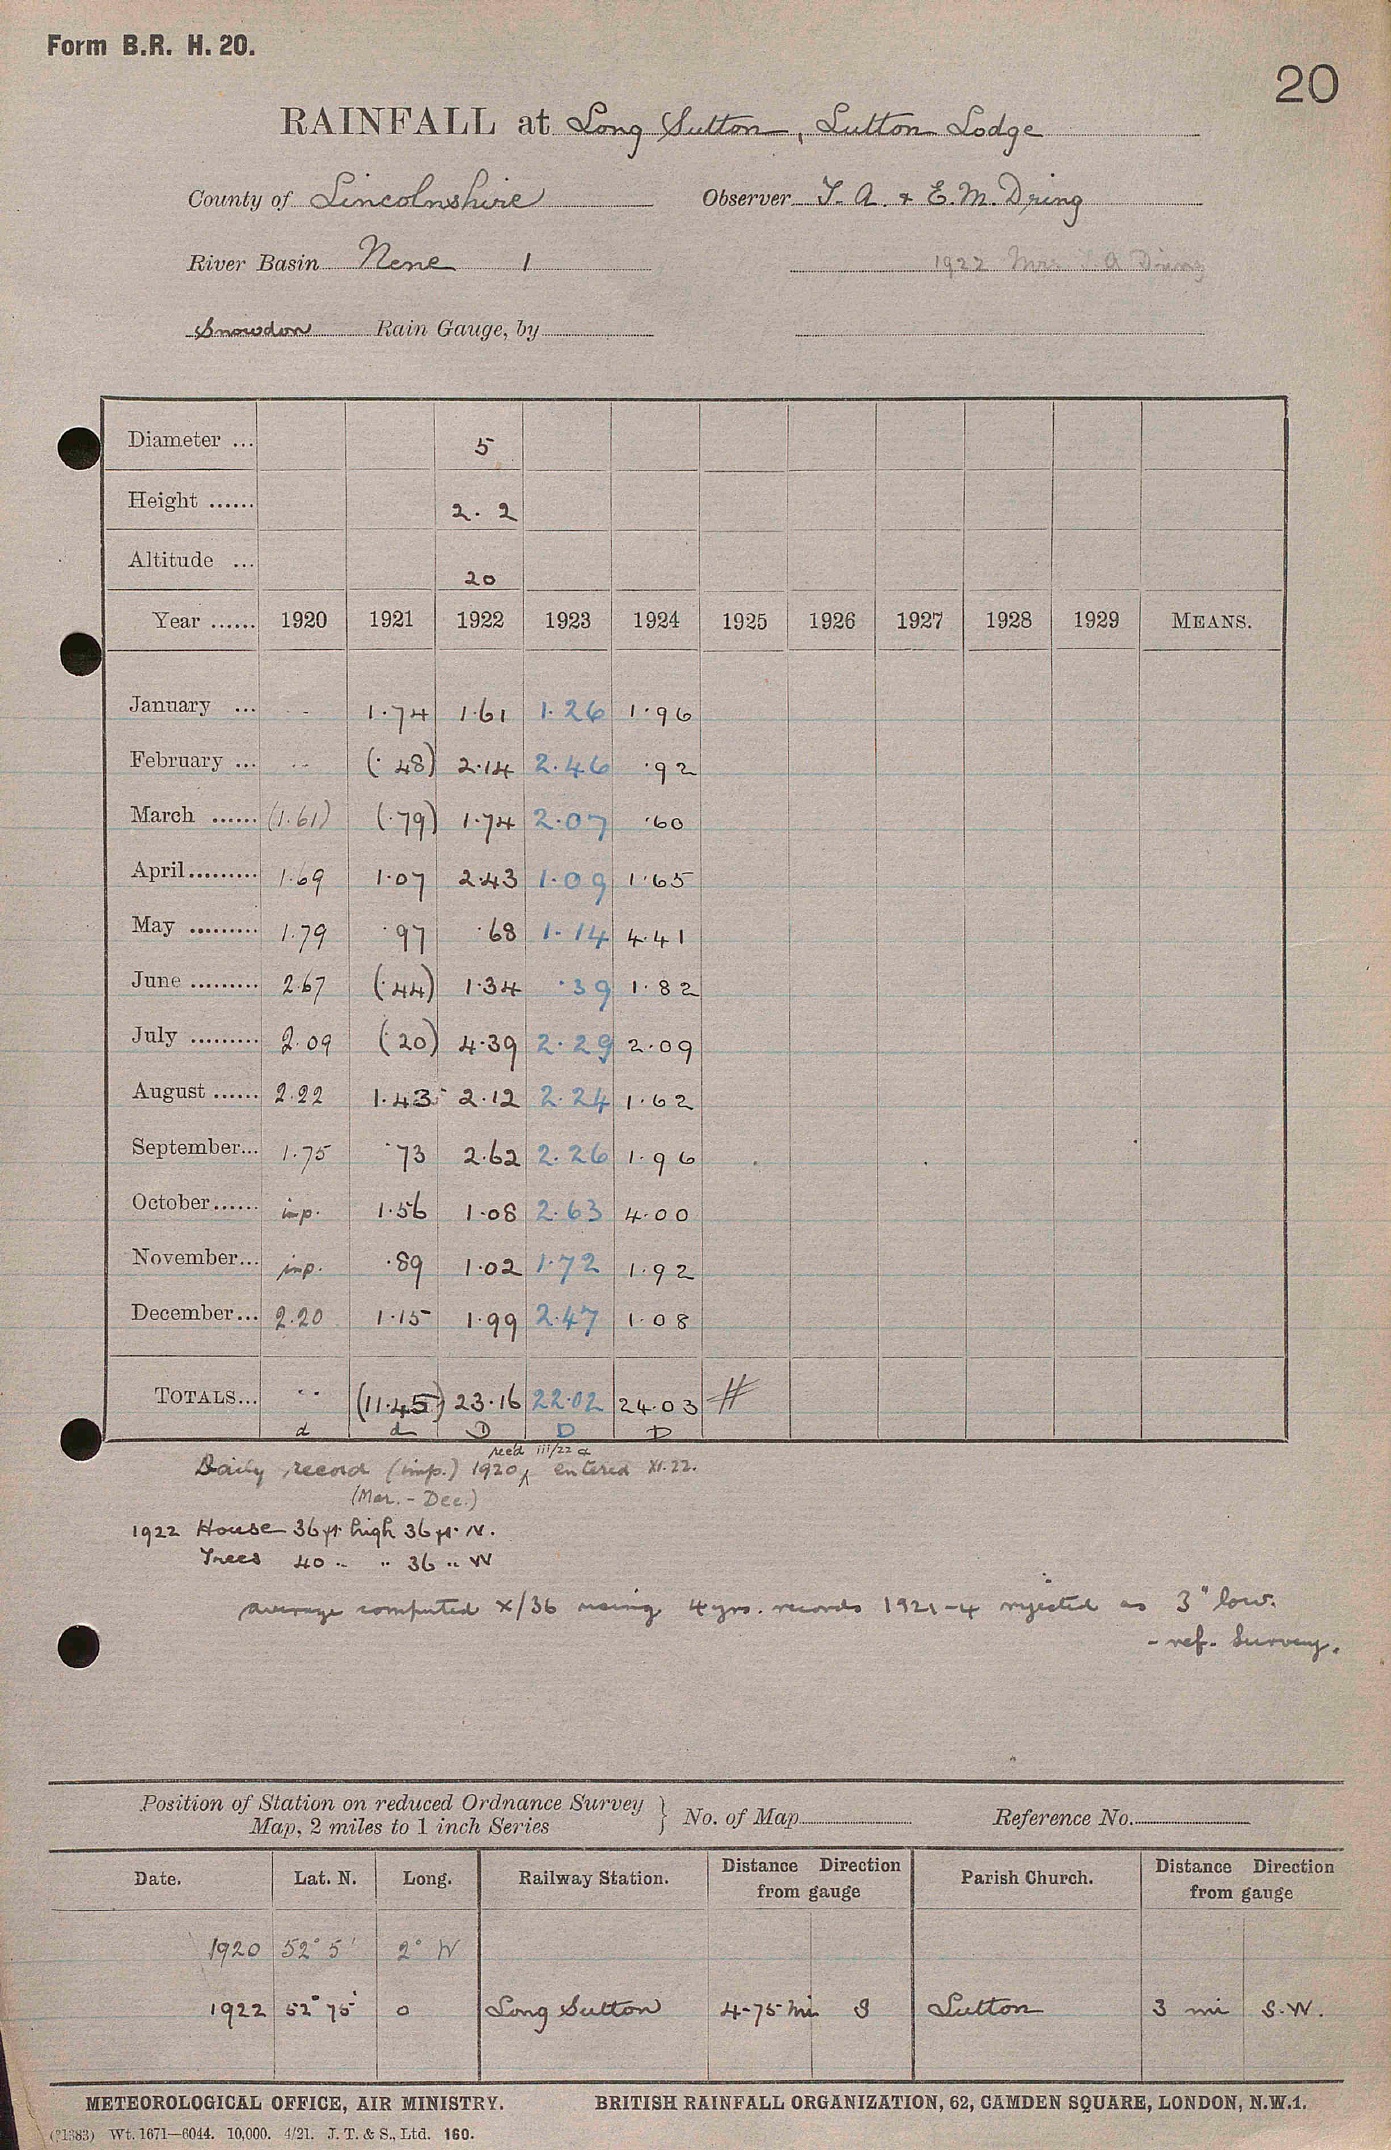 Form B.R. H. 20.
20
RAINFALL at Long Sutton, Lutton Lodge
County of Lincolnshire Observer T. A. & E. M. Dring
River Basin Nene 1 1922 Mrs A Dring
Snowdon Rain Gauge, by
Diameter ... 5
Height ...... 2. 2
Altitude ... 20
Year ...... 1920 1921 1922 1923 1924 1925 1926 1927 1928 1929 MEANS.
January ... .. 1.74 1.61 1.26 1.96
February ... .. (.48) 2.14 2.46 .92
March ...... (1.61) (.79) 1.74 2.07 .60
April ......... 1.69 1.07 2.43 1.09 1.65
May ......... 1.79 .97 .68 1.14 4.41
June ......... 2.67 (.44) 1.34 .39 1.82
July ......... 2.09 (.20) 4.39 2.29 2.09
August ...... 2.22 1.43 2.12 2.24 1.62
September... 1.75 .73 2.62 2.26 1.96
October...... imp. 1.56 1.08 2.63 4.00
November... imp. .89 1.02 1.72 1.92
December... 2.20 1.15 1.99 2.47 1.08
TOTALS... .. (11.45) 23.16 22.02 24.03 #
d d D D D
rec'd iii/22 a
Daily record (imp.) 1920 entered XI.22.
(Mar. - Dec.)
1922 House 36 ft. high 36 ft. N.
Trees 40 .. .. 36 .. W
average computed X/36 using 4 yrs. records 1921-4 rejected as 3" low.
- ref. Survey.
Position of Station on reduced Ordnance Survey Map, 2 miles to 1 inch Series } No. of Map Reference No.
Date. Lat. N. Long. Railway Station. Distance Direction from gauge Parish Church. Distance Direction from gauge
1920 52° 5' 2° W
1922 52° 75' 0 Long Sutton 4-75 mi S Lutton 3 mi S.W.
METEOROLOGICAL OFFICE, AIR MINISTRY. BRITISH RAINFALL ORGANIZATION, 62, CAMDEN SQUARE, LONDON, N.W.1.
(21383) Wt. 1671—6044. 10,000. 4/21. J. T. & S., Ltd. 160.